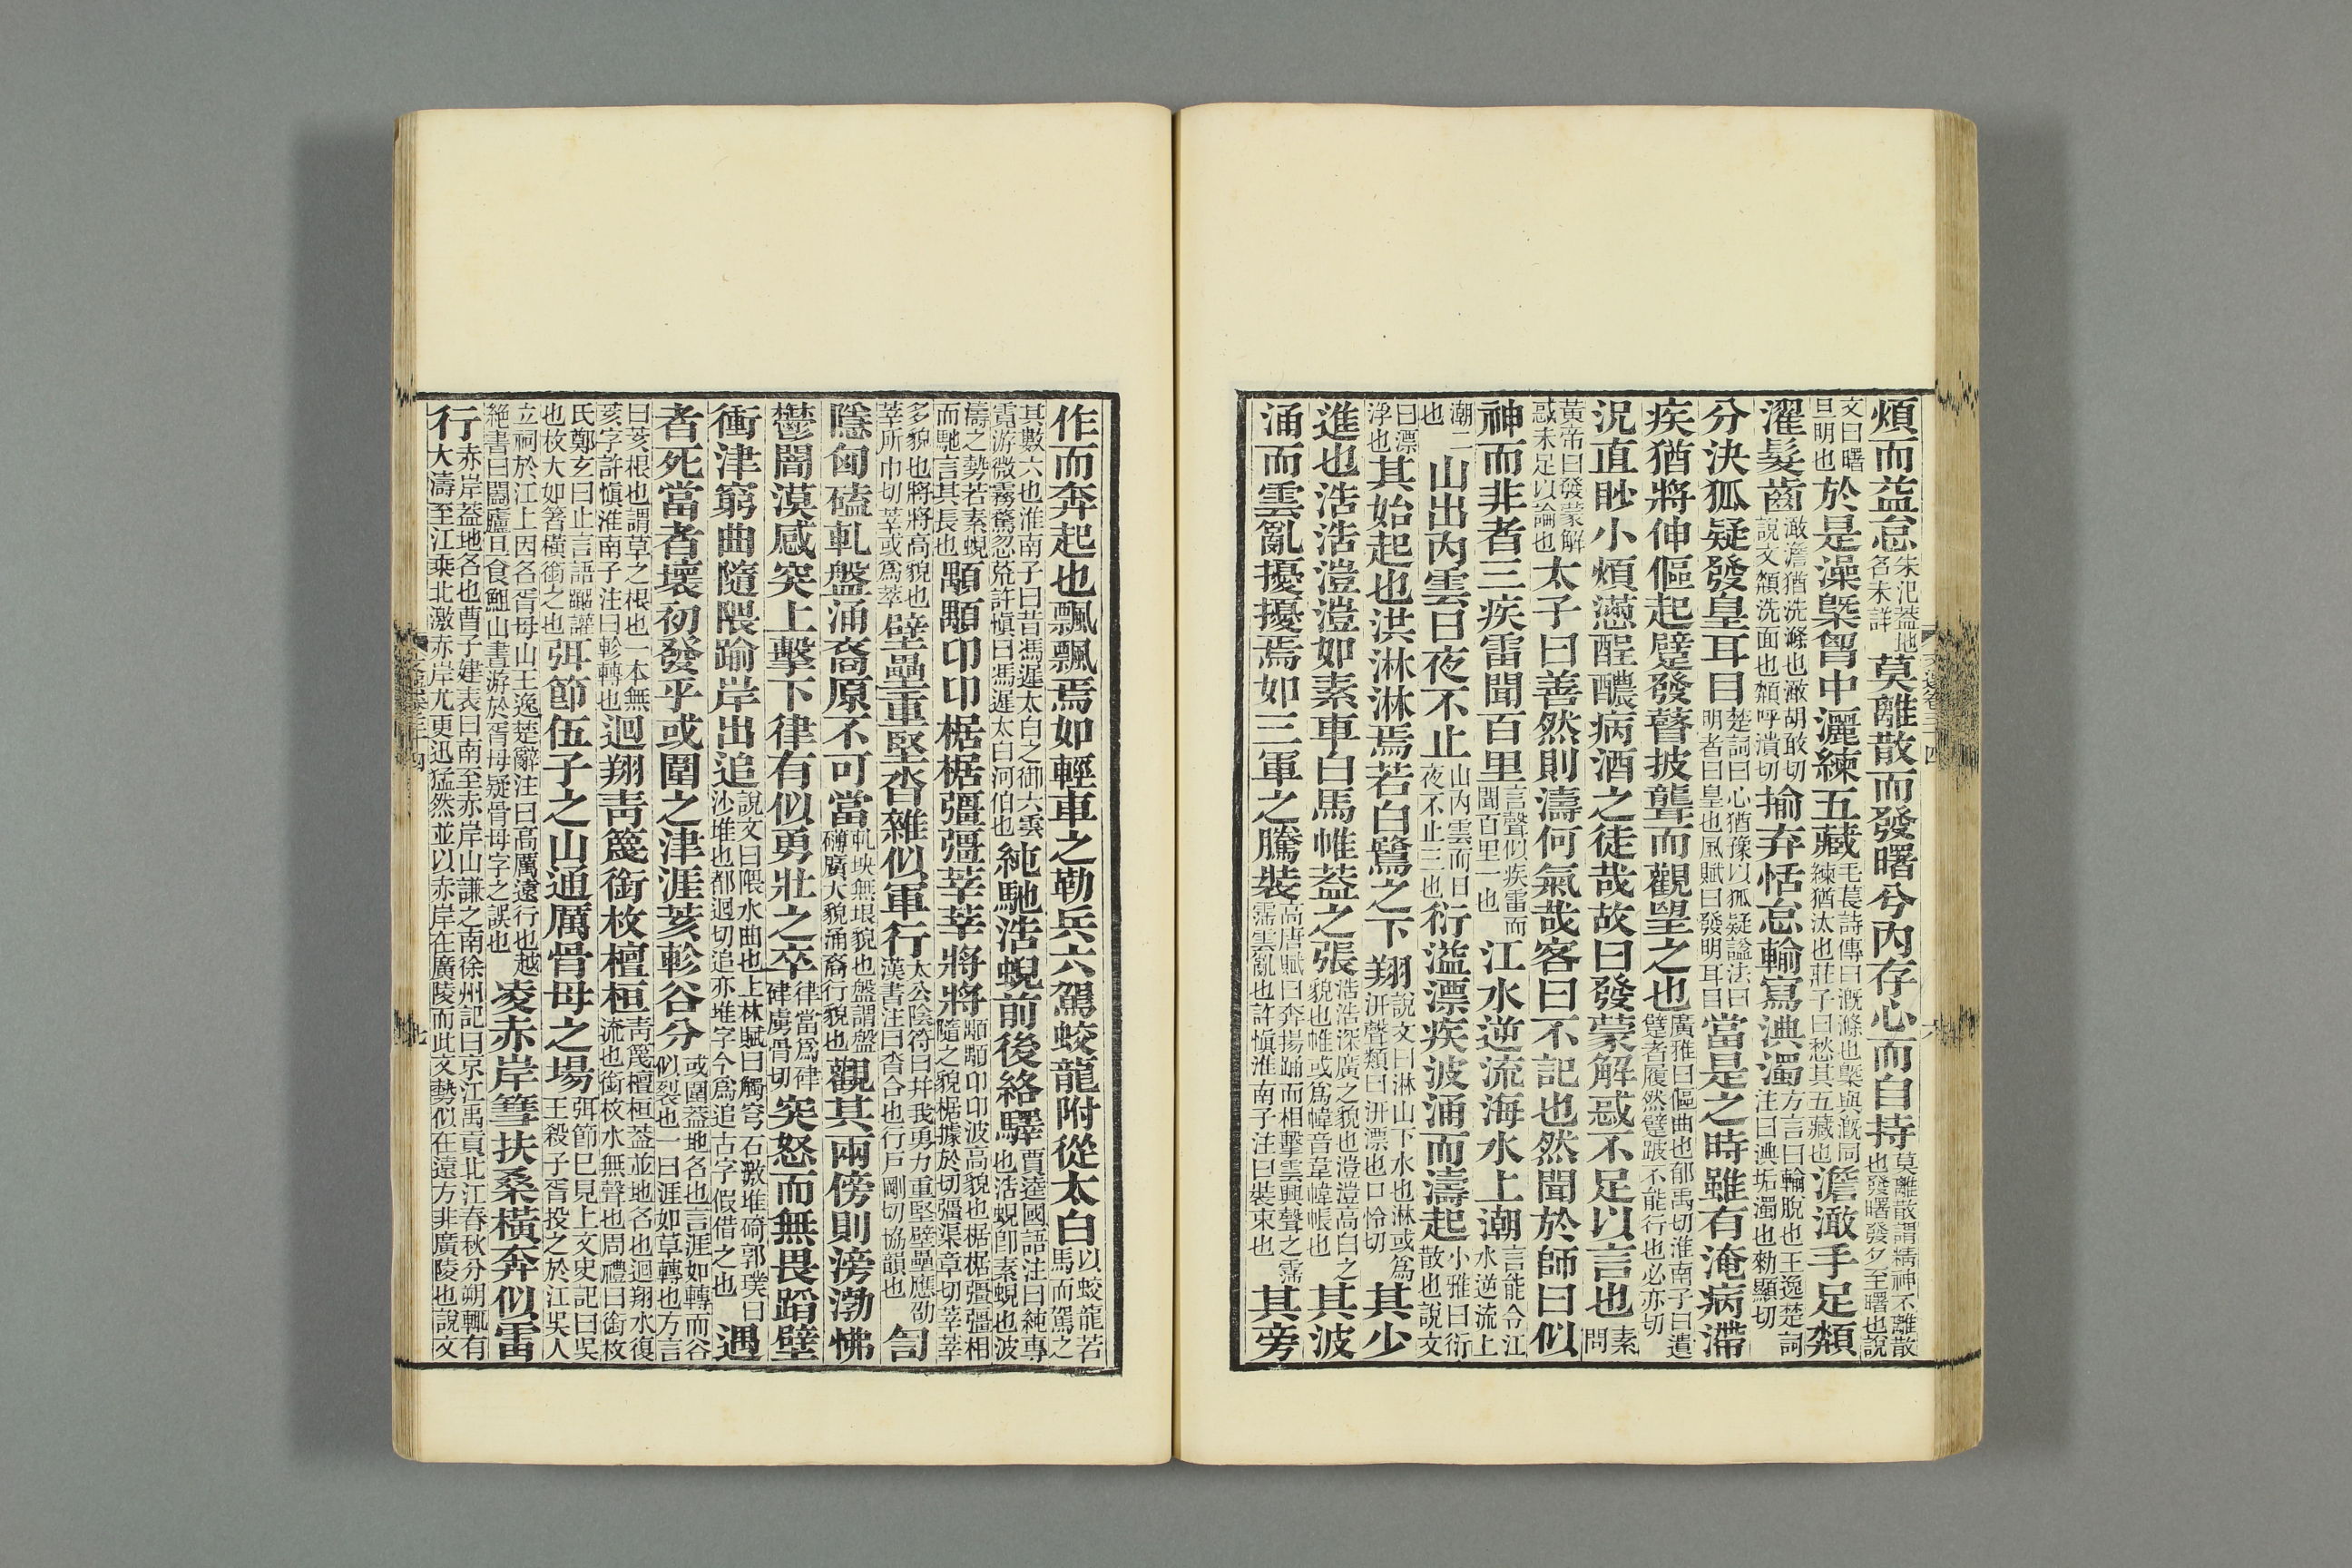 煩而益怠朱汜蓋地名未詳莫離散而發曙兮內存心而自持莫離散謂精神不離散也發曙發夕至曙也說
文曰曙旦明也於是澡槩胷中灑練五藏毛萇詩傳曰漑滌也槩與漑同練猶汰也莊子曰愁其五藏也澹澉手足頮
濯髮齒澉澹猶洗滌也澉胡敢切說文頮洗面也頮呼潰切揄弃恬怠輸寫淟濁方言曰輸脫也王逸楚詞注曰淟垢濁也勑顯切
分決狐疑發皇耳目楚詞曰心猶豫以狐疑謚法曰明者曰皇也風賦曰發明耳目當是之時雖有淹病滯
疾猶將伸傴起躄發瞽披聾而觀望之也廣雅曰傴曲也郁禹切淮南子曰遣躄者履然躄跛不能行也必亦切
況直眇小煩懣酲醲病酒之徒哉故曰發蒙解惑不足以言也素問
黃帝曰發蒙解惑未足以論也太子曰善然則濤何氣哉客曰不記也然聞於師曰似
神而非者三疾雷聞百里言聲似疾雷而聞百里一也江水逆流海水上潮言能令江水逆流上
潮二也山出內雲日夜不止山內雲而日夜不止三也衍溢漂疾波涌而濤起小雅曰衍散也說文
曰漂浮也其始起也洪淋淋焉若白鷺之下翔說文曰淋山下水也淋或爲汧聲類曰汧漂也口怜切其少
進也浩浩溰溰如素車白馬帷蓋之張浩浩深廣之貌也溰溰高白之貌也帷或爲幃音韋幃帳也其波
涌而雲亂擾擾焉如三軍之騰裝高唐賦曰奔揚踊而相擊雲興聲之霈霈雲亂也許愼淮南子注曰裝束也其旁
作而奔起也飄飄焉如輕車之勒兵六駕蛟龍附從太白以蛟龍若馬而駕之
其數六也淮南子曰昔馮遲太白之御六雲霓游微霧驁忽㲋許愼曰馮遲太白河伯也純馳浩蜺前後絡驛賈逵國語注曰純專也浩蜺卽素蜺也波
濤之勢若素蜺而馳言其長也顒顒卬卬椐椐彊彊莘莘將將顒顒卬卬波高貌也椐椐彊彊相隨之貌椐據於切彊渠章切莘莘
多貌也將將高貌也莘所巾切莘或爲萃壁壘重堅沓雜似軍行太公陰符曰幷我勇力重堅壁壘應劭漢書注曰沓合也行戶剛切協韻也訇
隱匈磕軋盤涌裔原不可當軋坱無垠貌也盤謂盤礴廣大貌涌裔行貌也觀其兩傍則滂渤怫
鬱闇漠感突上擊下律有似勇壯之卒律當爲硉硉虜骨切突怒而無畏蹈壁
衝津窮曲隨隈踰岸出追說文曰隈水曲也上林賦曰觸穹石激堆碕郭璞曰沙堆也都迴切追亦堆字今爲追古字假借之也遇
者死當者壞初發乎或圍之津涯荄軫谷分或圍蓋地名也言涯如轉而谷似裂也一曰涯如草轉也方言
曰荄根也謂草之根也一本無荄字許愼淮南子注曰軫轉也迴翔靑篾銜枚檀桓靑篾檀桓蓋並地名也迴翔水復流也銜枚水無聲也周禮曰銜枚
氏鄭玄曰止言語囂讙也枚大如箸橫銜之也弭節伍子之山通厲骨母之場弭節已見上文史記曰吳王殺子胥投之於江吳人
立祠於江上因名胥母山王逸楚辭注曰高厲遠行也越絕書曰闔廬旦食䱉山晝游於胥母疑骨母字之誤也凌赤岸篲扶桑橫奔似雷
行赤岸蓋地名也曹子建表曰南至赤岸山謙之南徐州記曰京江禹貢北江春秋分朔輒有大濤至江乘北激赤岸尤更迅猛然並以赤岸在廣陵而此文勢似在遠方非廣陵也說文